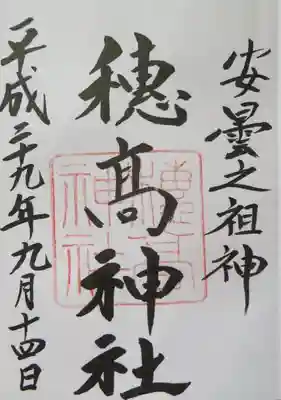 安曇之祖神
穂髙神社
平成二十九年九月十四日
穂髙神社